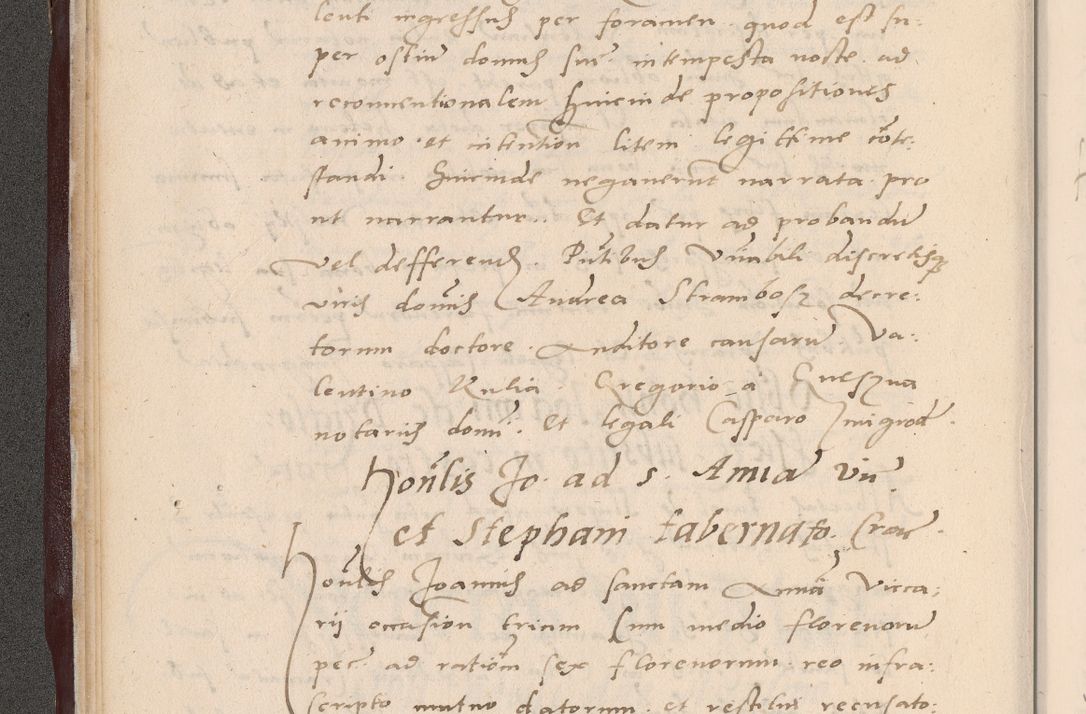 lenti ingressus per foramen quod est su:
per ostiu domus sui intempesta nocte ad
reconventionalem hincinde propositiones
animo et intention litem legittime cote:
standi. hincinde negaverut narrata pro
ut narrantur. Et datur ad probandu
vel defferend. Putibus Vnabili discretisq
viris domis Andrea Strambosz decre:
torum doctore Auditore causaru Va:
lentino Kulia Gregorio a
notariis domi. Et legali Casparo Imigrod.
Honlis Jo. ad s. Anna Vii
et Stephani tabernato. Crac.
Honlis Joannis ad sanctam Anna Vicca:
rii occasion trium Cum medio florenoru
pec. ad ration sex florenorum reo infra:
scripto mutuo datorum et restitui recusato: